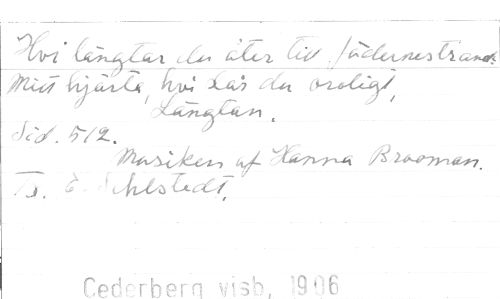 Hvi längtar du åter till fädernestrand.
Mitt hjärta, hvi slår du oroligt,
Längtan.
Sid. 512.
Musiken af Hanna Brooman.
E. Ahlstedt.
Cederberg visb, 1906